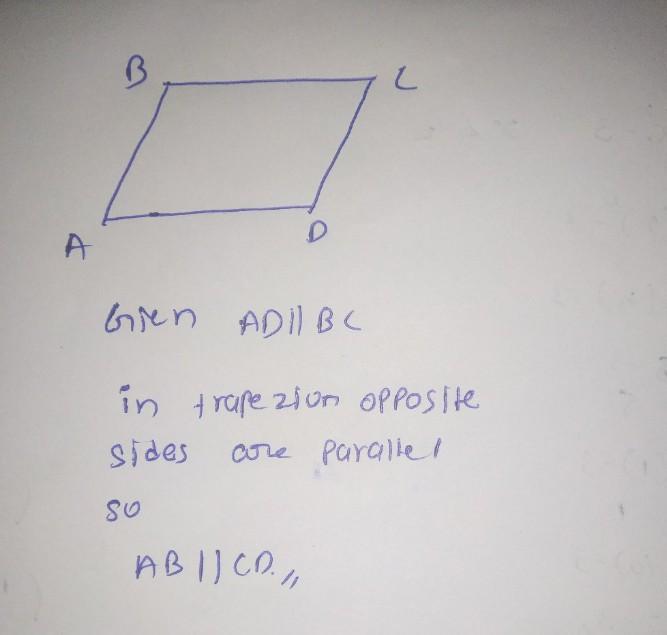 B C
A D
Given AD || BC
in trapezion opposite
sides are parallel
so
AB || CD.,,